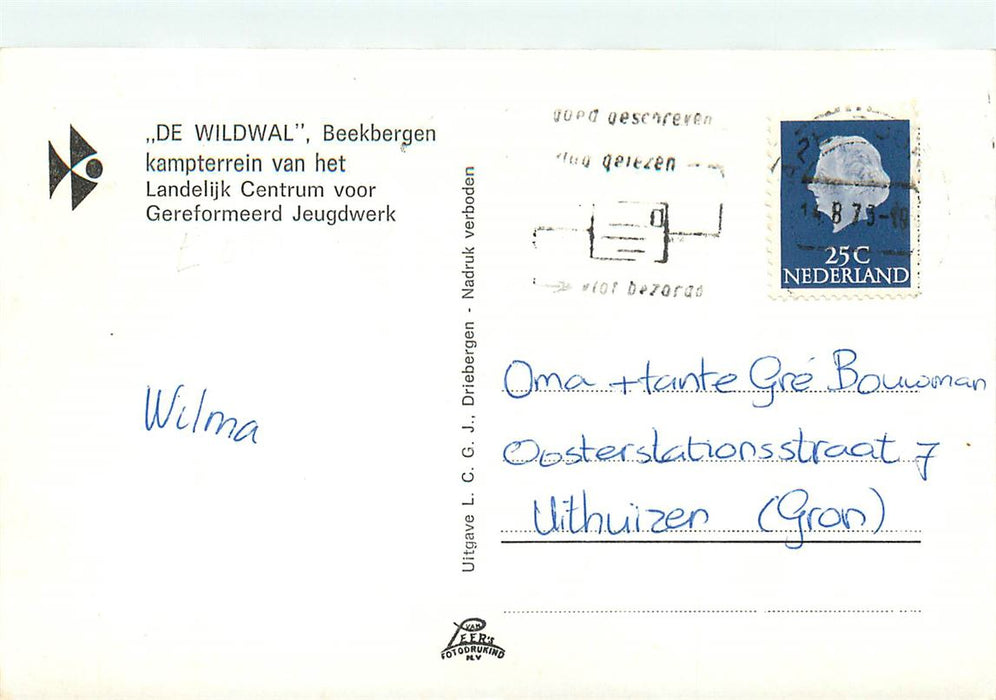 „DE WILDWAL”, Beekbergen
kampterrein van het
Landelijk Centrum voor
Gereformeerd Jeugdwerk
Wilma
Uitgave L. C. G. J., Driebergen - Nadruk verboden
VAN
LEER'S
FOTODRUKIND
N.V
goed geschreven
vlug gelezen
vlot bezorgd
14.8.73-18
25C
NEDERLAND
Oma + tante Gré Bouwman
Oosterstationsstraat 7
Uithuizen (Gron)